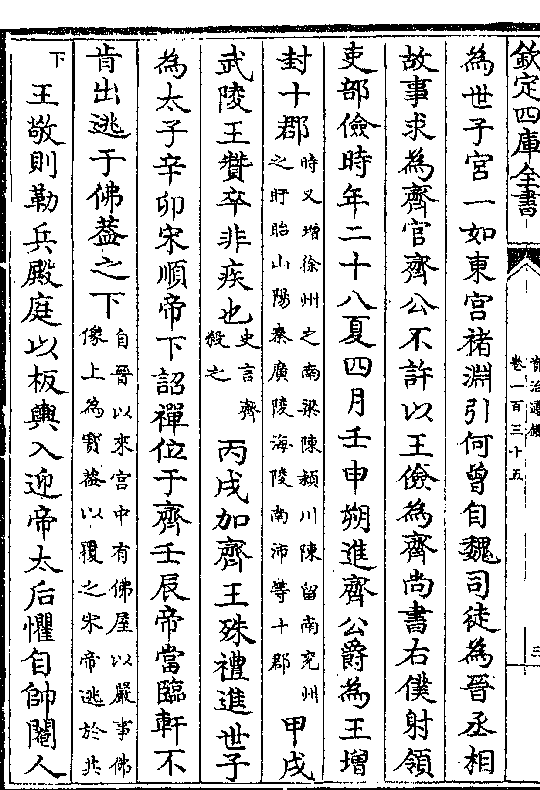 欽定四庫全書
資治通鑑
卷一百三十五
三
為世子宮一如東宮褚淵引何曾自魏司徒為晉丞相
故事求為齊官齊公不許以王儉為齊尚書右僕射領
吏部儉時年二十八夏四月壬申朔進齊公爵為王增
封十郡
時又增徐州之南梁陳潁川陳留南兖州
之盱眙山陽秦廣陵海陵南沛等十郡
甲戌
武陵王贊卒非疾也
史言齊
殺之
丙戌加齊王殊禮進世子
為太子辛卯宋順帝下詔禪位于齊壬辰帝當臨軒不
肯出逃于佛葢之下
自晉以來宮中有佛屋以嚴事佛
像上為寳葢以覆之宋帝逃於其
下
王敬則勒兵殿庭以板輿入迎帝太后懼自帥閹人